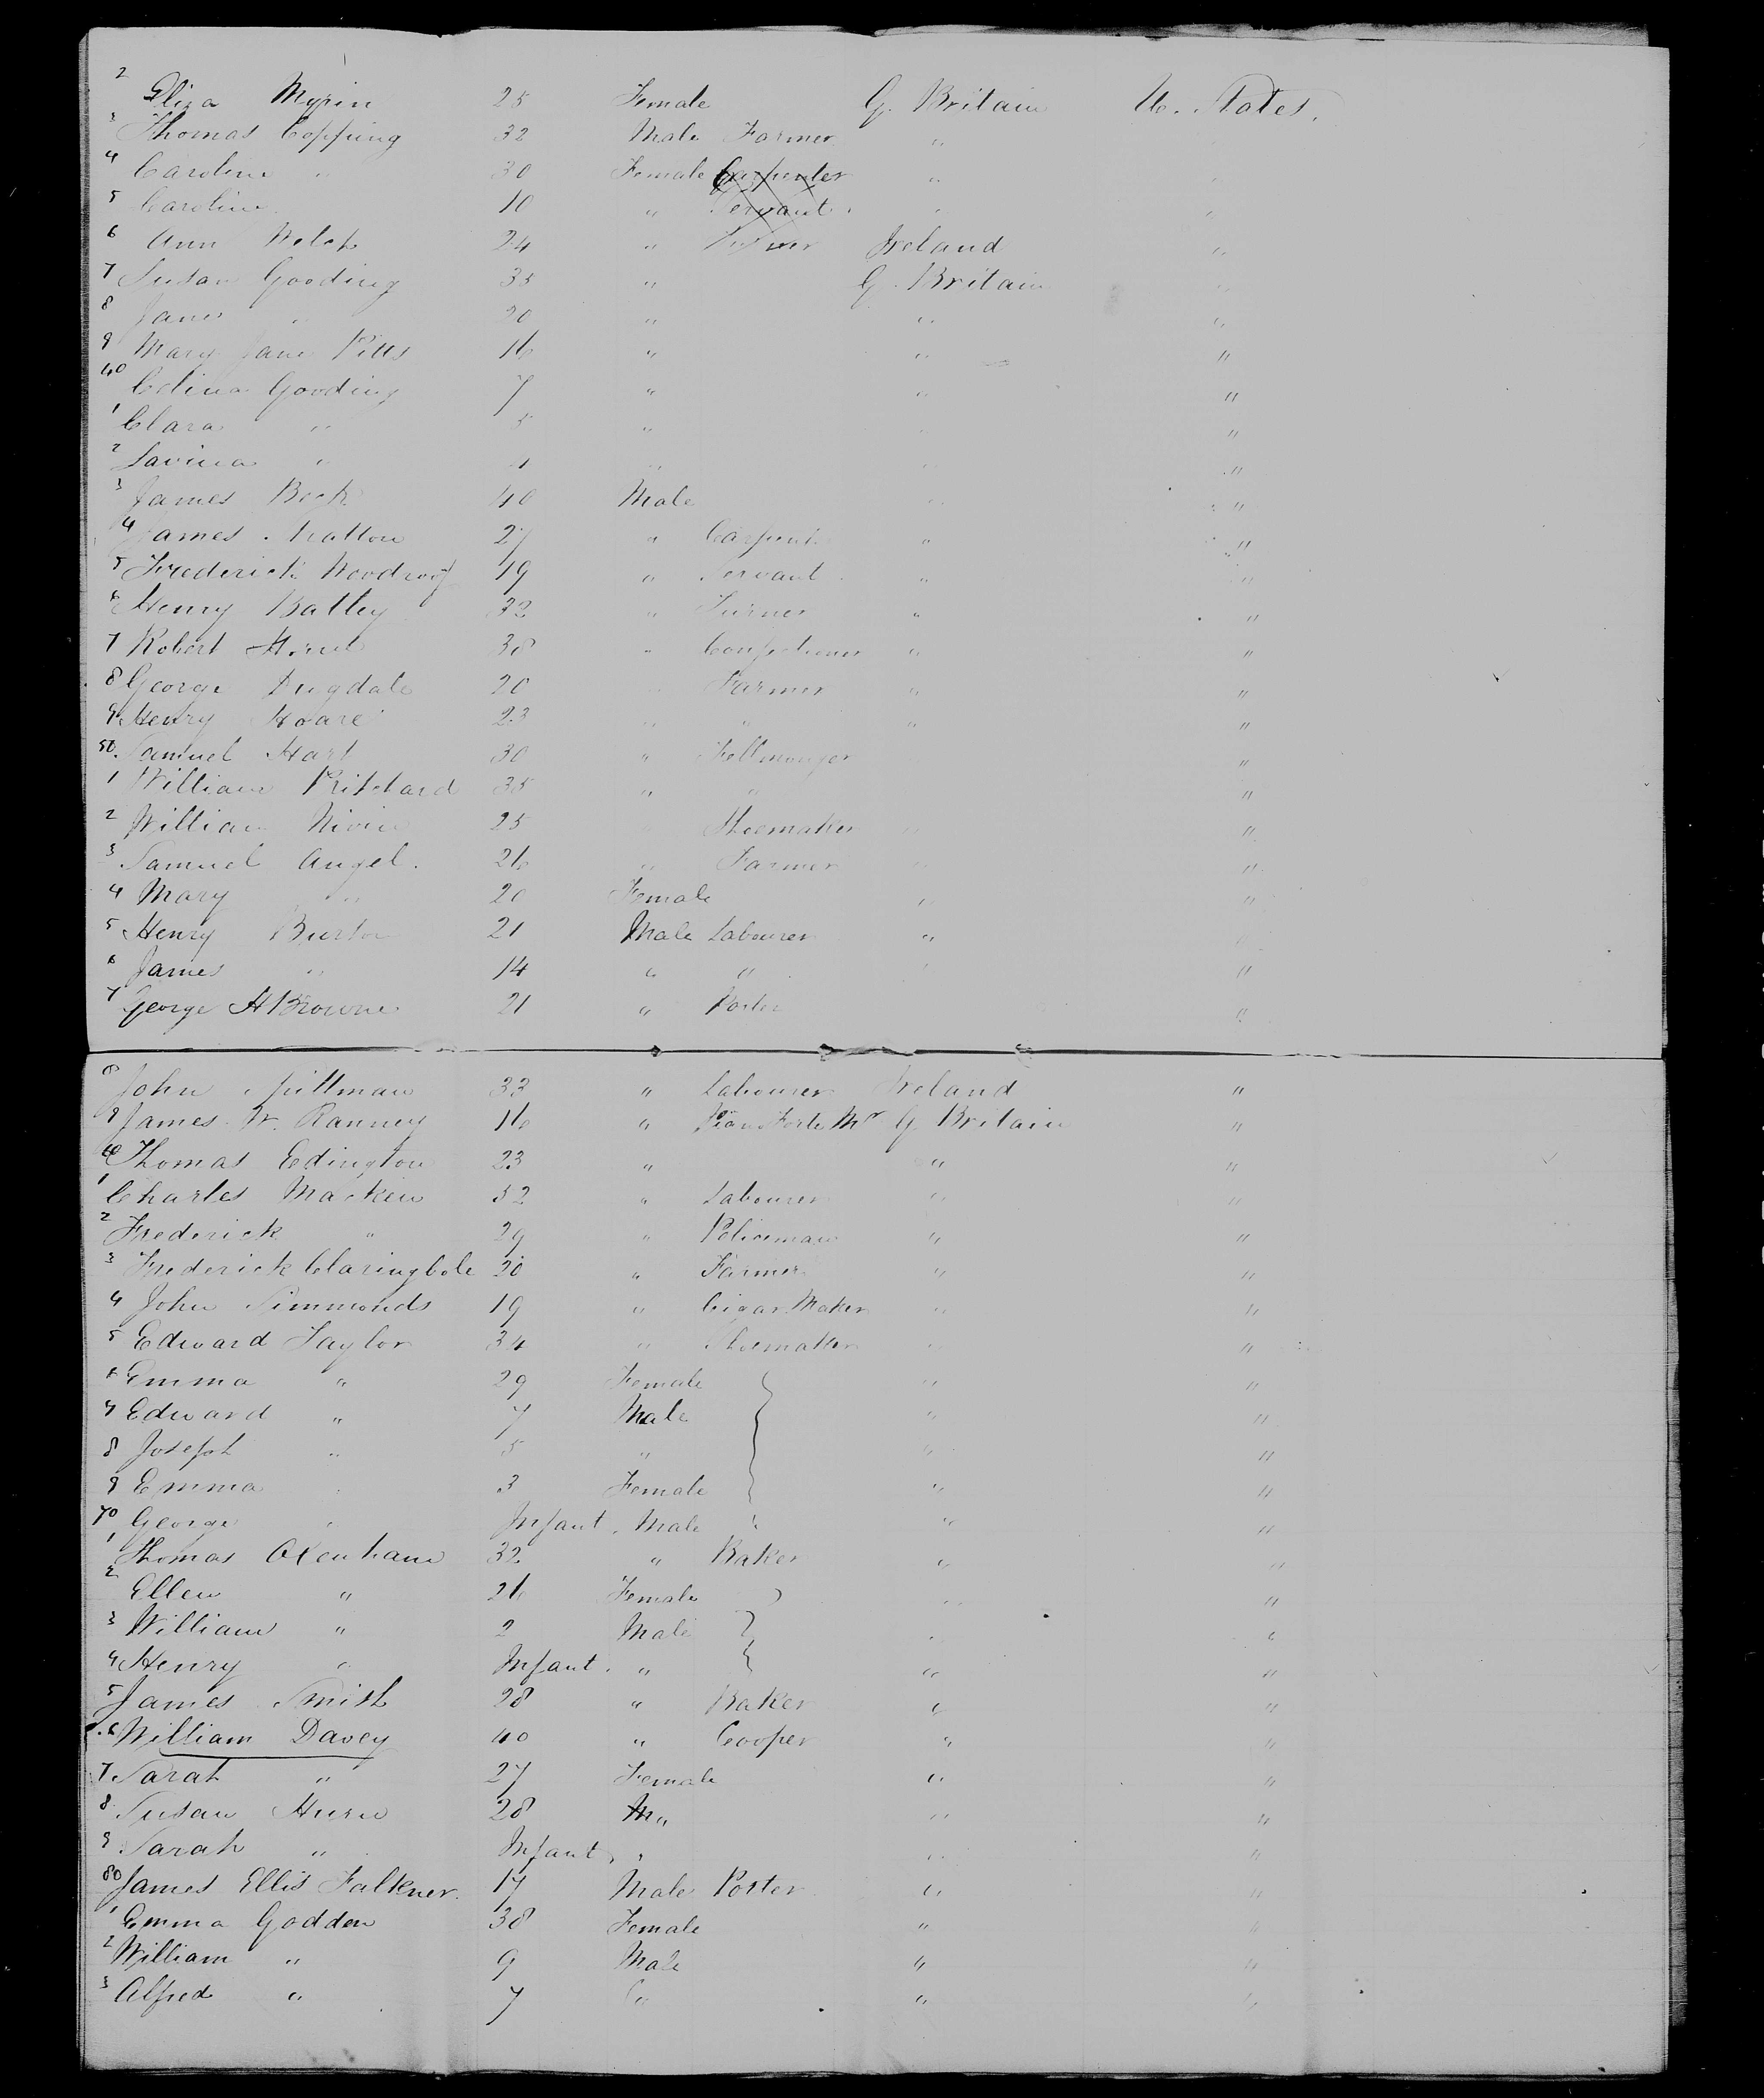 2 Eliza Myrin 25 Female G. Britain U. States.
3 Thomas Copping 32 Male Farmer "
4 Caroline " 30 Female Carpenter " "
5 Caroline 10 " Servant " "
6 Ann Welch 24 " Turner Ireland "
7 Susan Gooding 35 " G. Britain "
8 Jane " 20 " " "
9 Mary Jane Pitts 16 " " "
40 Celina Gooding 7 " " "
1 Clara " 5 " "
2 Lavinia " " " "
3 James Beck 40 Male " "
4 James 27 " Carpenter " "
5 Frederick Woodroof 19 " Servant " "
6 Henry Batley 32 " Turner " "
7 Robert 38 " Confectioner " "
8 George Dugdale 20 " Farmer " "
9 Henry Hoare 23 " " " "
50 Samuel Hart 30 " Fellmonger "
1 William Pritchard 35 " " "
2 William Nivin 25 " Shoemaker " "
3 Samuel Angel. 26 " Farmer " "
4 Mary " 20 Female " "
5 Henry Burton 21 Male Labourer " "
6 James " 14 " " "
7 George H Browne 21 " Porter "
8 John Spillman 33 " Labourer Ireland "
9 James W. Ranney 16 " Piano Forte Mr G. Britain "
60 Thomas Edington 23 " " "
1 Charles Macken 52 " Labourer " "
2 Frederick " 29 " Policeman " "
3 Frederick Claringbole 20 " Farmer " "
4 John Simmonds 19 " Cigar Maker " "
5 Edward Taylor 34 " Shoemaker " "
6 Emma " 29 Female " "
7 Edward " 7 Male " "
8 Joseph " 5 " " "
9 Emma " 3 Female " "
70 George " Infant. Male " "
1 Thomas Oxenham 32 " Baker " "
2 Ellen " 26 Female " "
3 William " 2 Male " "
4 Henry " Infant. " " "
5 James Smith 28 " Baker " "
6 William Davey 40 " Cooper " "
7 Sarah " 27 Female " "
8 Susan Hurn 28 M " " "
9 Sarah " Infant " " "
80 James Ellis Falkner. 17 Male Porter " "
1 Emma Godden 38 Female " "
2 William " 9 Male " "
3 Alfred " 7 " " "